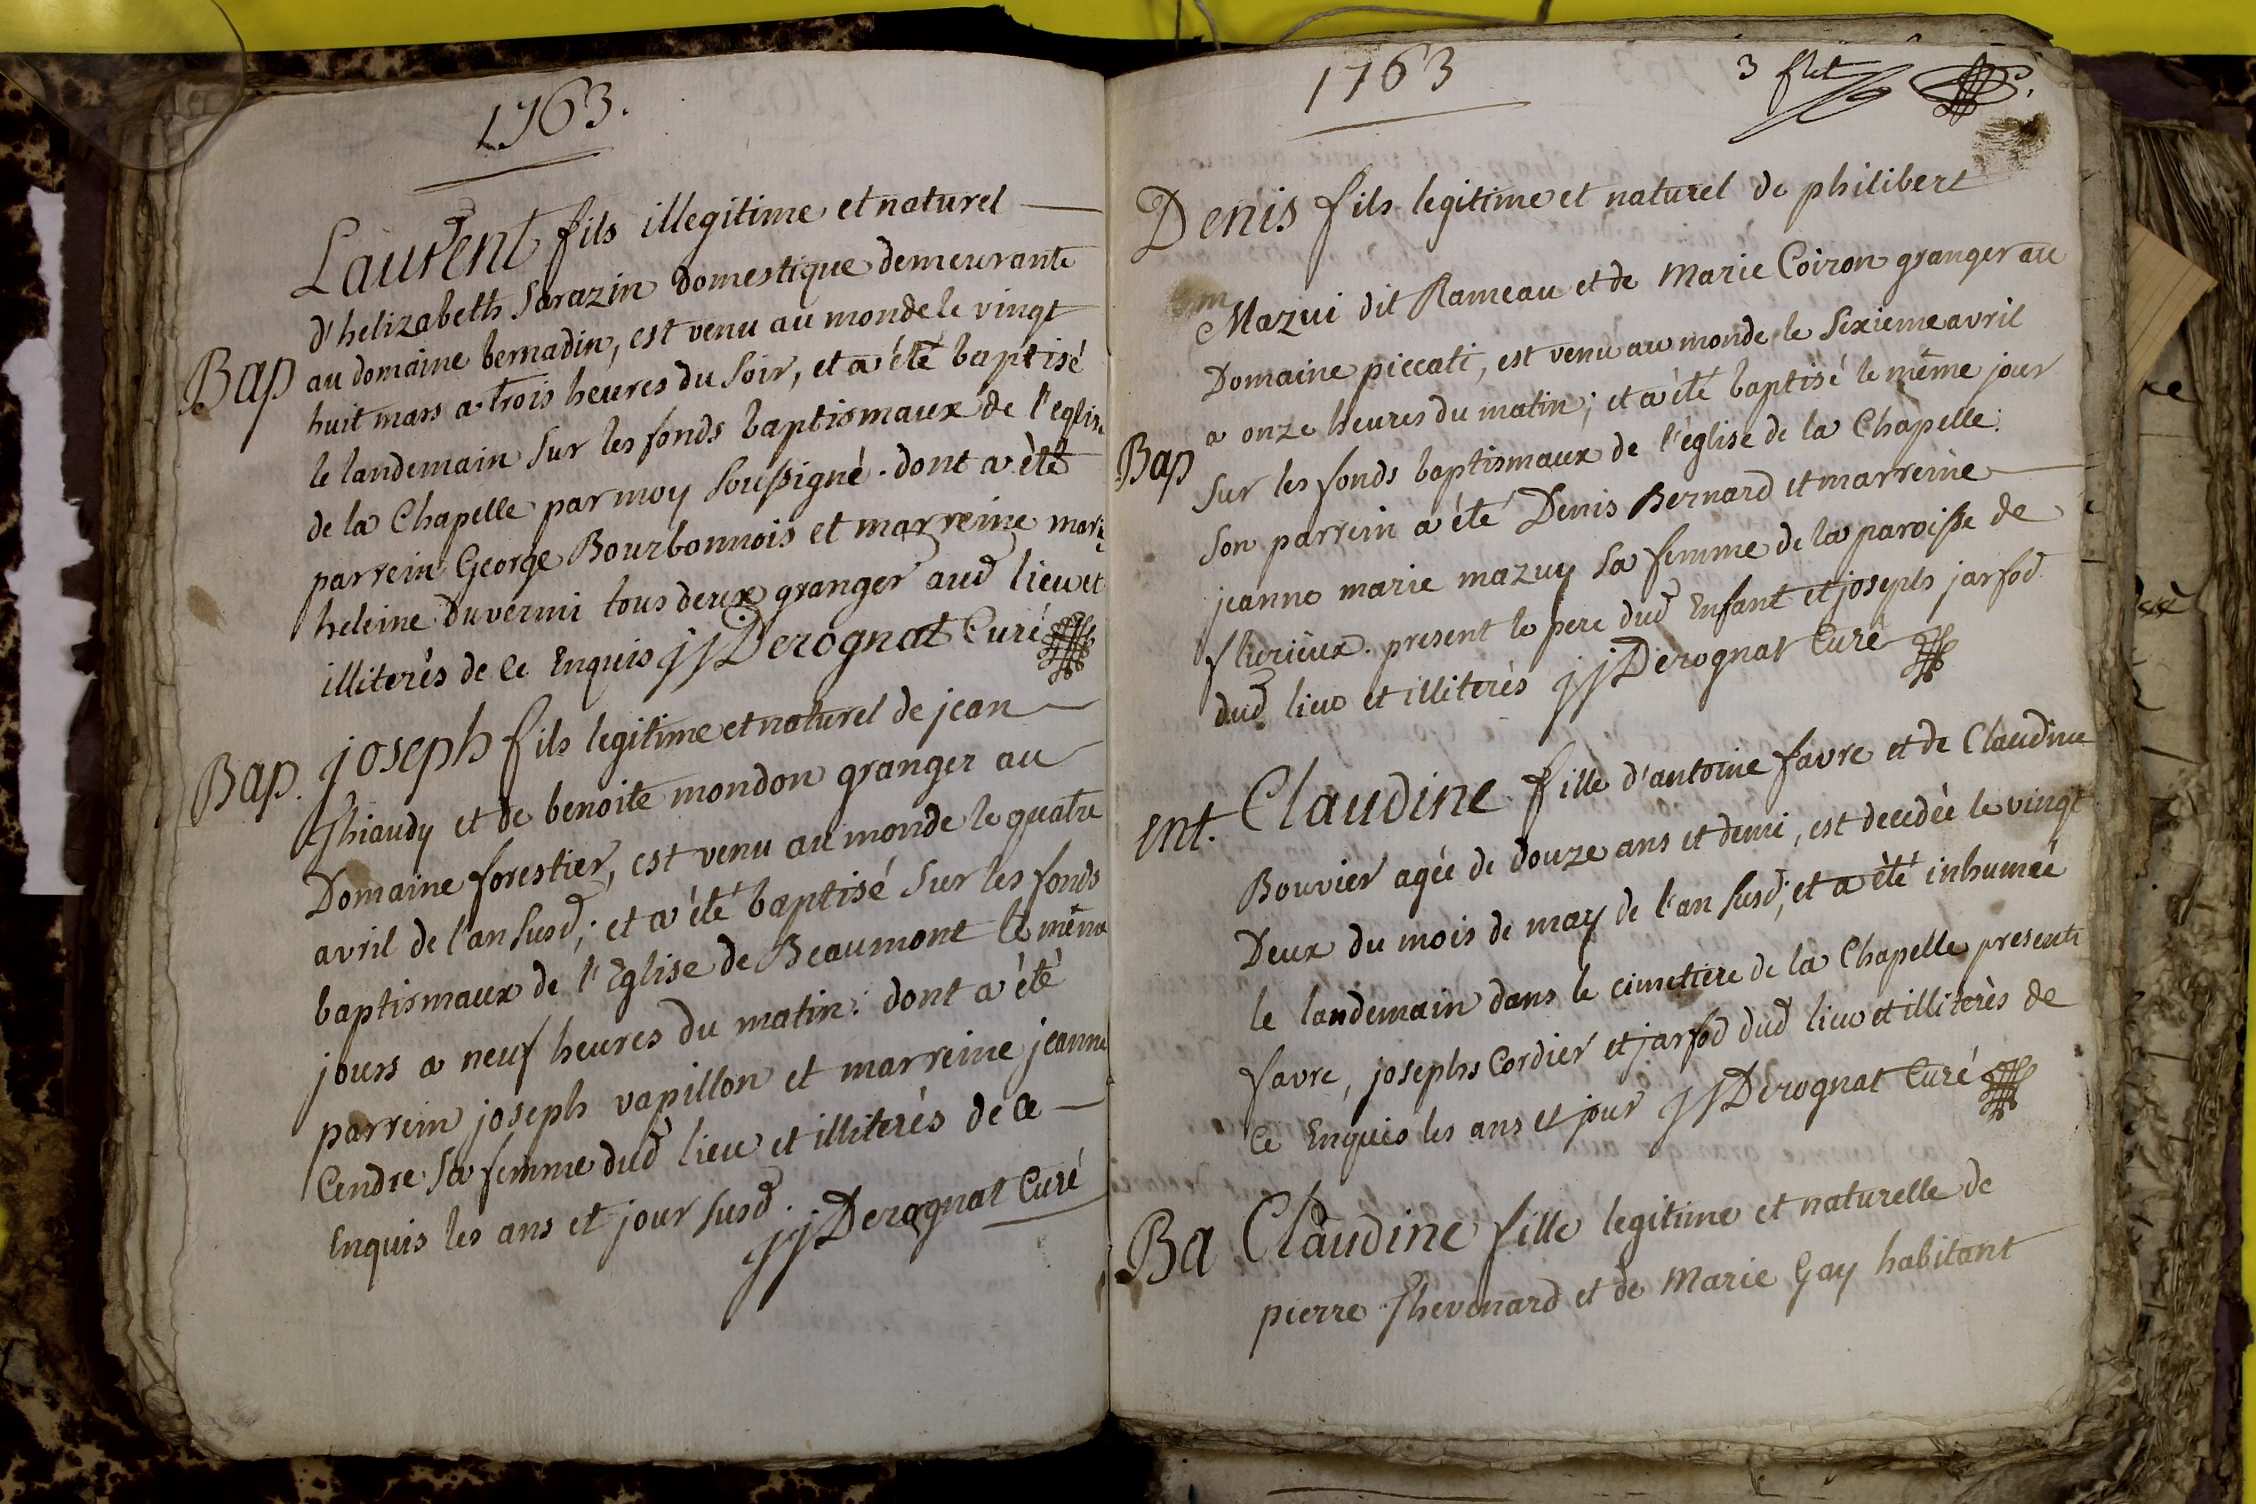 1763.
Laurent fils illegitime et naturel
d'helizabeth Sarazin domestique demeurante
Bap au domaine bernadin, est venu au monde le vingt
huit mars a trois heures du soir, et a été baptisé
le landemain sur les fonds baptismaux de l'eglise
de la Chapelle par moy soussigné. dont a été
parrein George Bourbonnois et marreine marie
heleine duvermi tous deux granger aud lieu et
illiterés de ce Enquis jjDerognat Curé
Bap. joseph fils legitime et naturel de jean
Thiaudy et de benoite mondon granger au
Domaine forestier, est venu au monde le quatre
avril de l'an susd; et a été baptisé sur les fonds
baptismaux de l'Eglise de Beaumont le même
jours a neuf heures du matin: dont a été
parrein joseph vapillon et marreine jeanne
Cendre sa femme dud lieu et illiterés de ce
Enquis les ans et jour susd.
jjDerognat Curé
1763
3 flet
Denis fils legitime et naturel de philibert
Mazui dit Rameau et de Marie Coiron granger au
Domaine piccati, est venu au monde le sixieme avril
a onze heures du matin; et a été baptisé le même jour
Bap sur les fonds baptismaux de l'église de la Chapelle:
son parrein a été Denis Bernard et marreine
jeanne marie mazuy sa femme de la paroisse de
flurieux. present le pere dud Enfant et joseph jarfod
dud lieu et illiterés jjDerognat Curé
Ent. Claudine fille d'antoine favre et de Claudine
Bouvier agée de douze ans et demi, est decedée le vingt
Deux du mois de may de l'an susd; et a été inhumée
le landemain dans le cimetiere de la Chapelle presents
favre, josephs Cordier et jarfod dud lieu et illiterés de
ce Enquis les ans et jour jjDerognat Curé
Ba Claudine fille legitime et naturelle de
pierre Thevenard et de Marie Gay habitant